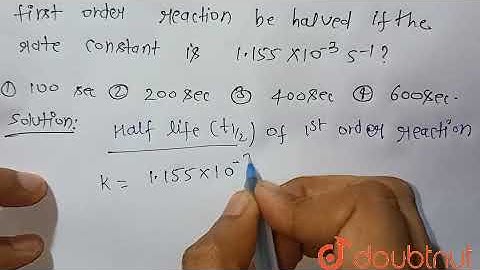 first order reaction be halved if the
rate constant is 1.155 × 10⁻³ s⁻¹ ?
① 100 sec ② 200 sec ③ 400 sec ④ 600 sec.
Solution:
Half life (t1/2) of 1st order reaction
K = 1.155 × 10⁻
doubtnut